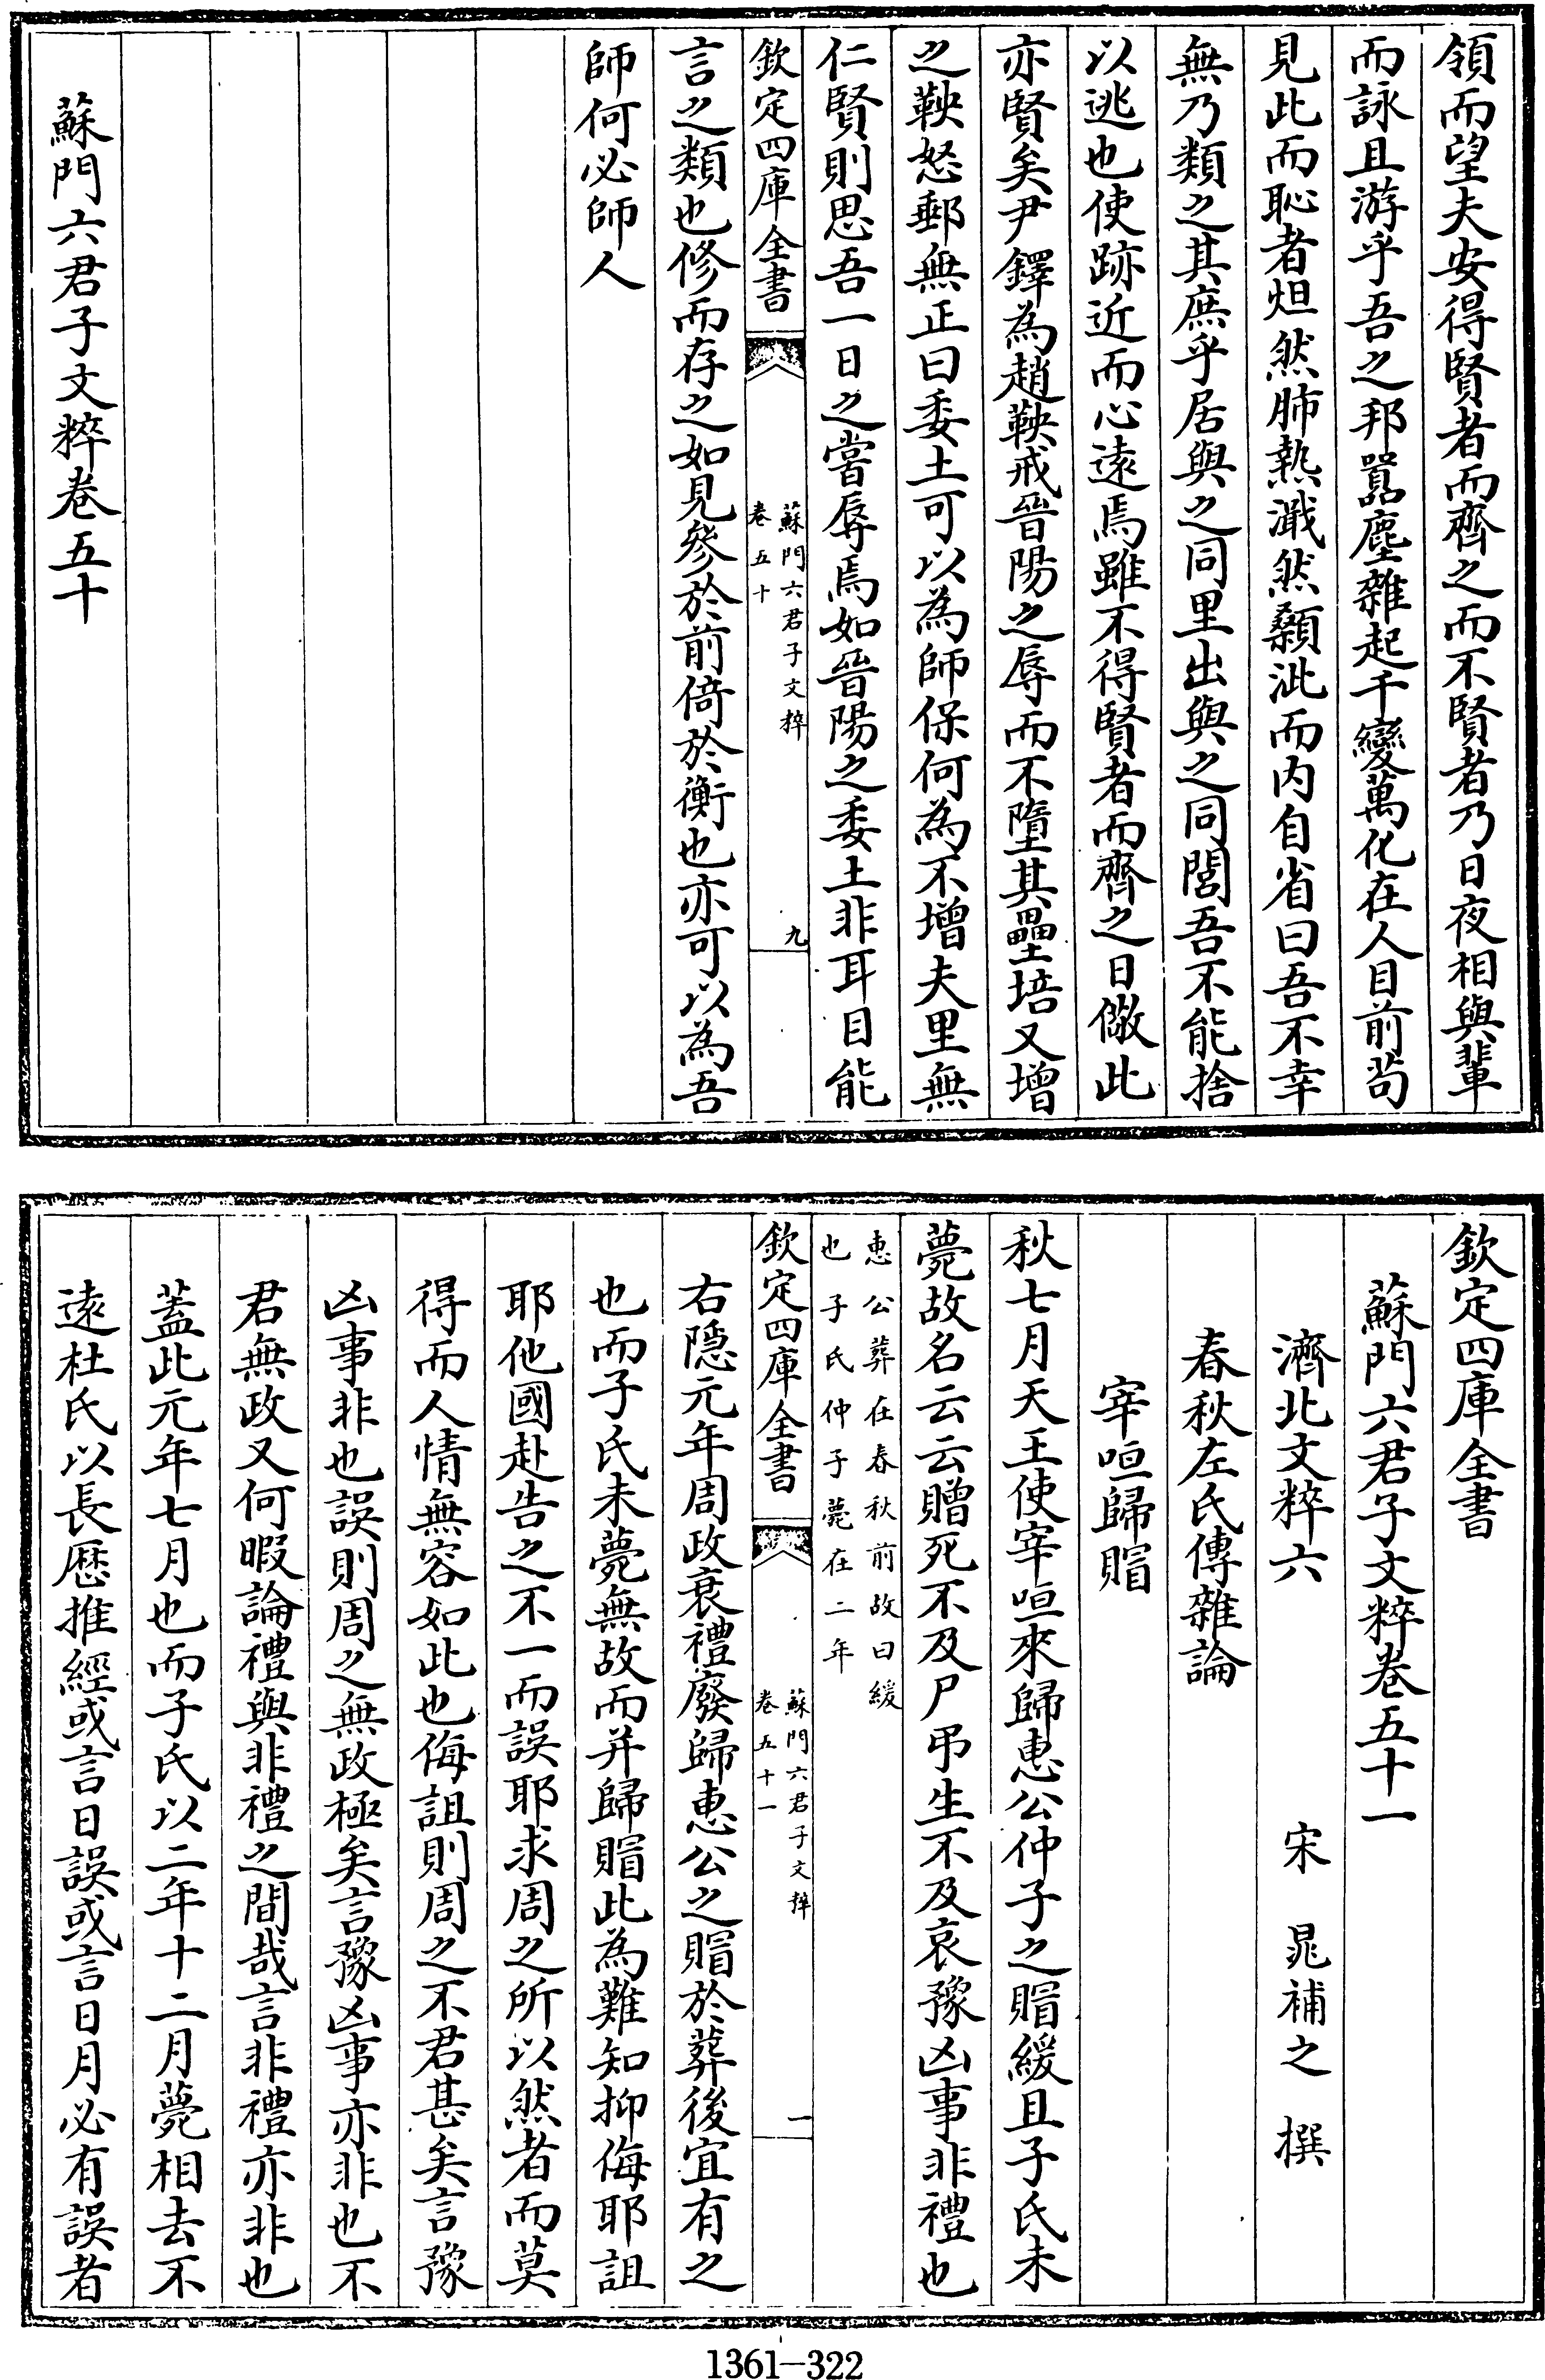 領而望夫安得賢者而齊之而不賢者乃日夜相與輩
而詠且游乎吾之邦嚣塵雜起千變萬化在人目前茍
見此而恥者怛然肺熱濈然顙泚而内自省曰吾不幸
無乃類之其庶乎居與之同里出與之同閭吾不能捨
以逃也使跡近而心逺焉雖不得賢者而齊之日儆此
亦賢矣尹鐸為趙鞅戒晉陽之辱而不墮其壘培又增
之鞅怒郵無正曰委土可以為師保何為不增夫里無
仁賢則思吾一日之嘗辱焉如晉陽之委土非耳目能
欽定四庫全書
蘇門六君子文粹
卷五十
九
言之類也修而存之如見參於前倚於衡也亦可以為吾
師何必師人
蘇門六君子文粹卷五十
欽定四庫全書
蘇門六君子文粹卷五十一
濟北文粹六 宋 晁補之 撰
春秋左氏傳雜論
宰咺歸賵
秋七月天王使宰咺來歸惠公仲子之賵緩且子氏未
薨故名云云贈死不及尸弔生不及哀豫凶事非禮也
惠公葬在春秋前故曰緩
也子氏仲子薨在二年
欽定四庫全書
蘇門六君子文粹
卷五十一
一
右隠元年周政衰禮廢歸惠公之賵於葬後宜有之
也而子氏未薨無故而并歸賵此為難知抑侮耶詛
耶他國赴告之不一而誤耶求周之所以然者而莫
得而人情無容如此也侮詛則周之不君甚矣言豫
凶事非也誤則周之無政極矣言豫凶事亦非也不
君無政又何暇論禮與非禮之間哉言非禮亦非也
蓋此元年七月也而子氏以二年十二月薨相去不
逺杜氏以長厯推經或言日誤或言日月必有誤者
1361-322